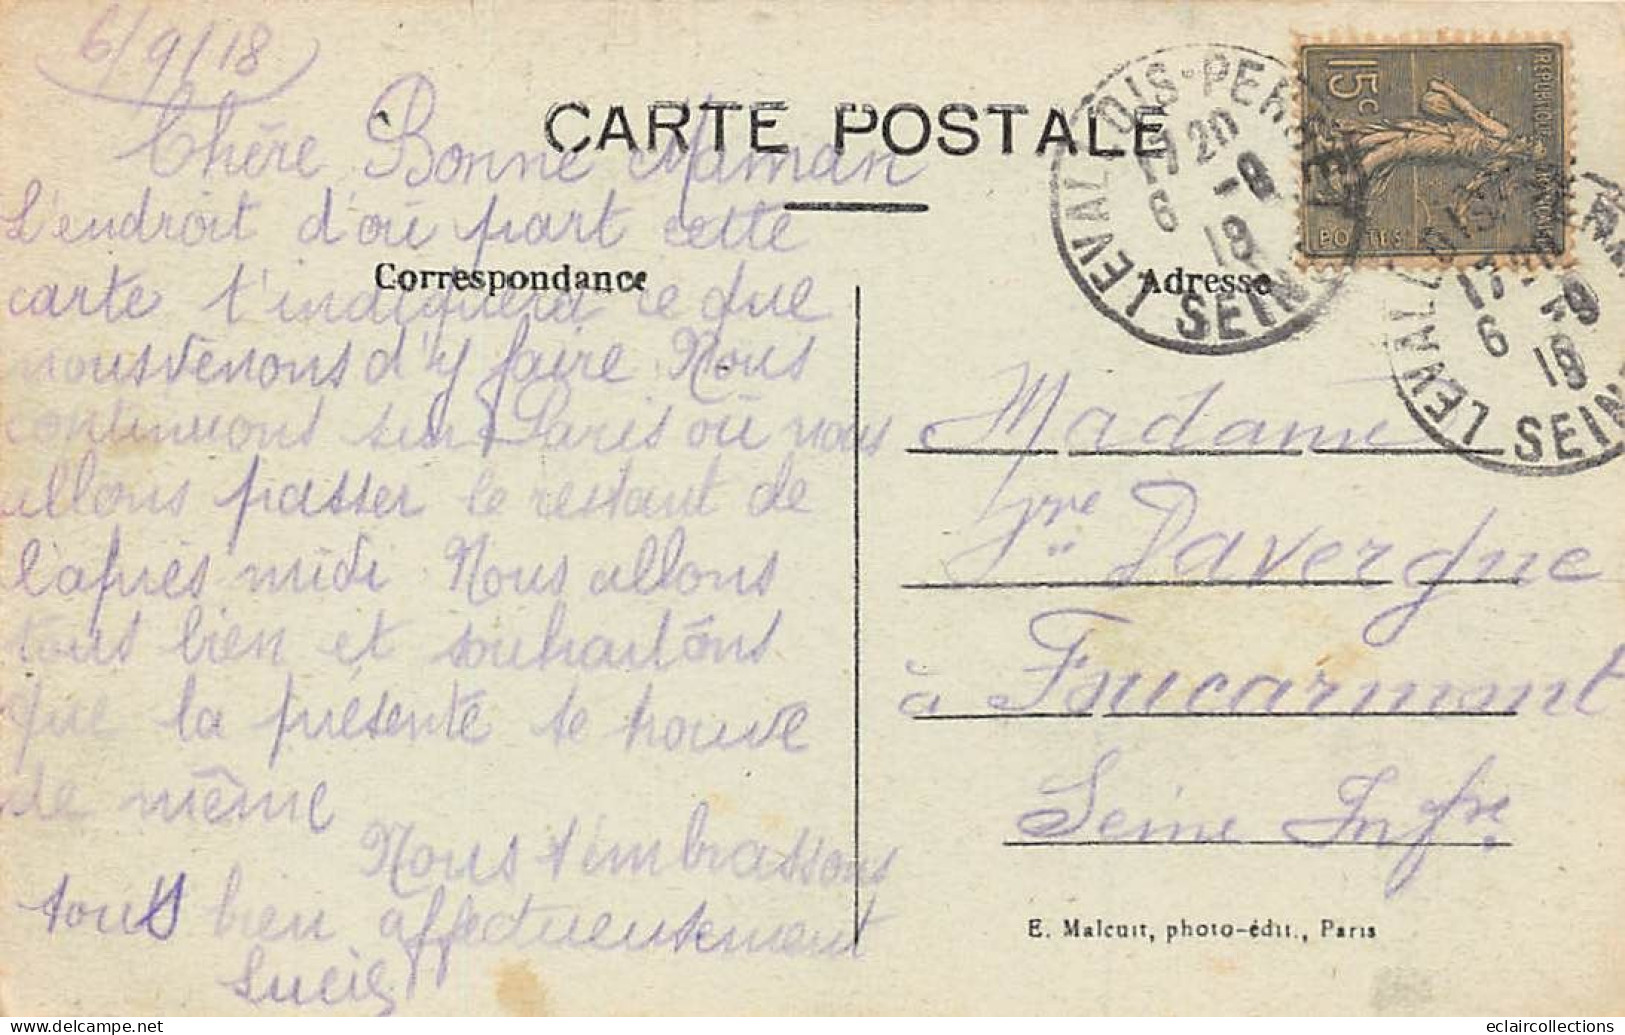 6/9/18
CARTE POSTALE
Chère Bonne Maman
L'endroit d'où part cette
Correspondance
carte t'indiquera ce que
nous venons d'y faire Nous
continuons sur Paris où nous
allons passer le restant de
l'après midi. Nous allons
tous bien et souhaitons
que la présente te trouve
de même
Nous t'embrassons
tous bien affectueusement
Lucie
Adresse
Madame
Vve Davergne
à Foucarmont
Seine Infre
E. Malcuit, photo-édit., Paris
REPUBLIQUE FRANÇAISE
15c
POSTES
LEVALLOIS-PERRET
17 20
6 -9
18
SEINE
LEVALLOIS
17
6 -9
18
SEINE
eclaircollections